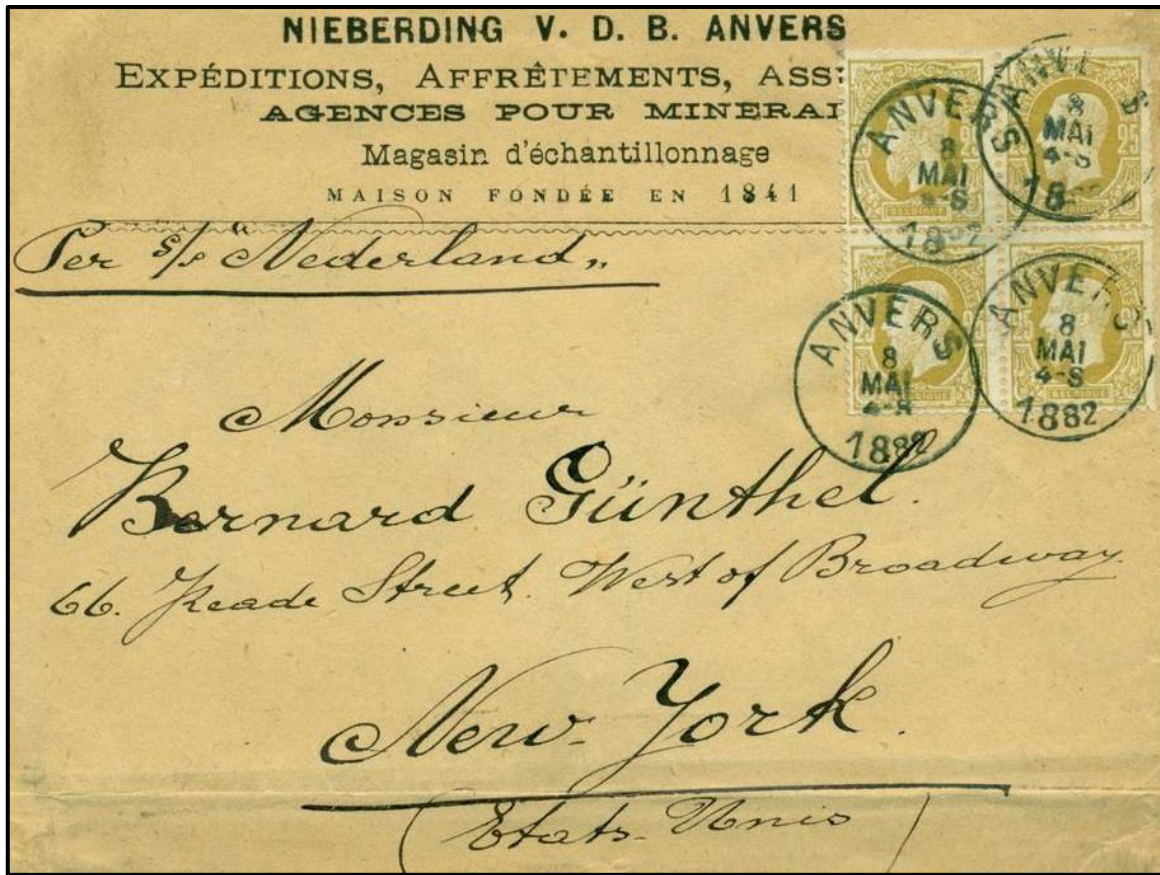 NIEBERDING V. D. B. ANVERS
EXPÉDITIONS, AFFRÊTEMENTS, ASS
AGENCES POUR MINERAI
Magasin d'échantillonnage
MAISON FONDÉE EN 1841
Per s/s "Nederland„
ANVERS
8
MAI
4-S
1882
ANVE S
8
MAI
4-S
18
25
BELGIQUE
ANVERS
8
MAI
4-S
1882
ANVERS
8
MAI
4-S
1882
BELGIQUE
Monsieur
Bernard Günthel.
66. Reade Street. West of Broadway.
New-York.
(Etats-Unis)